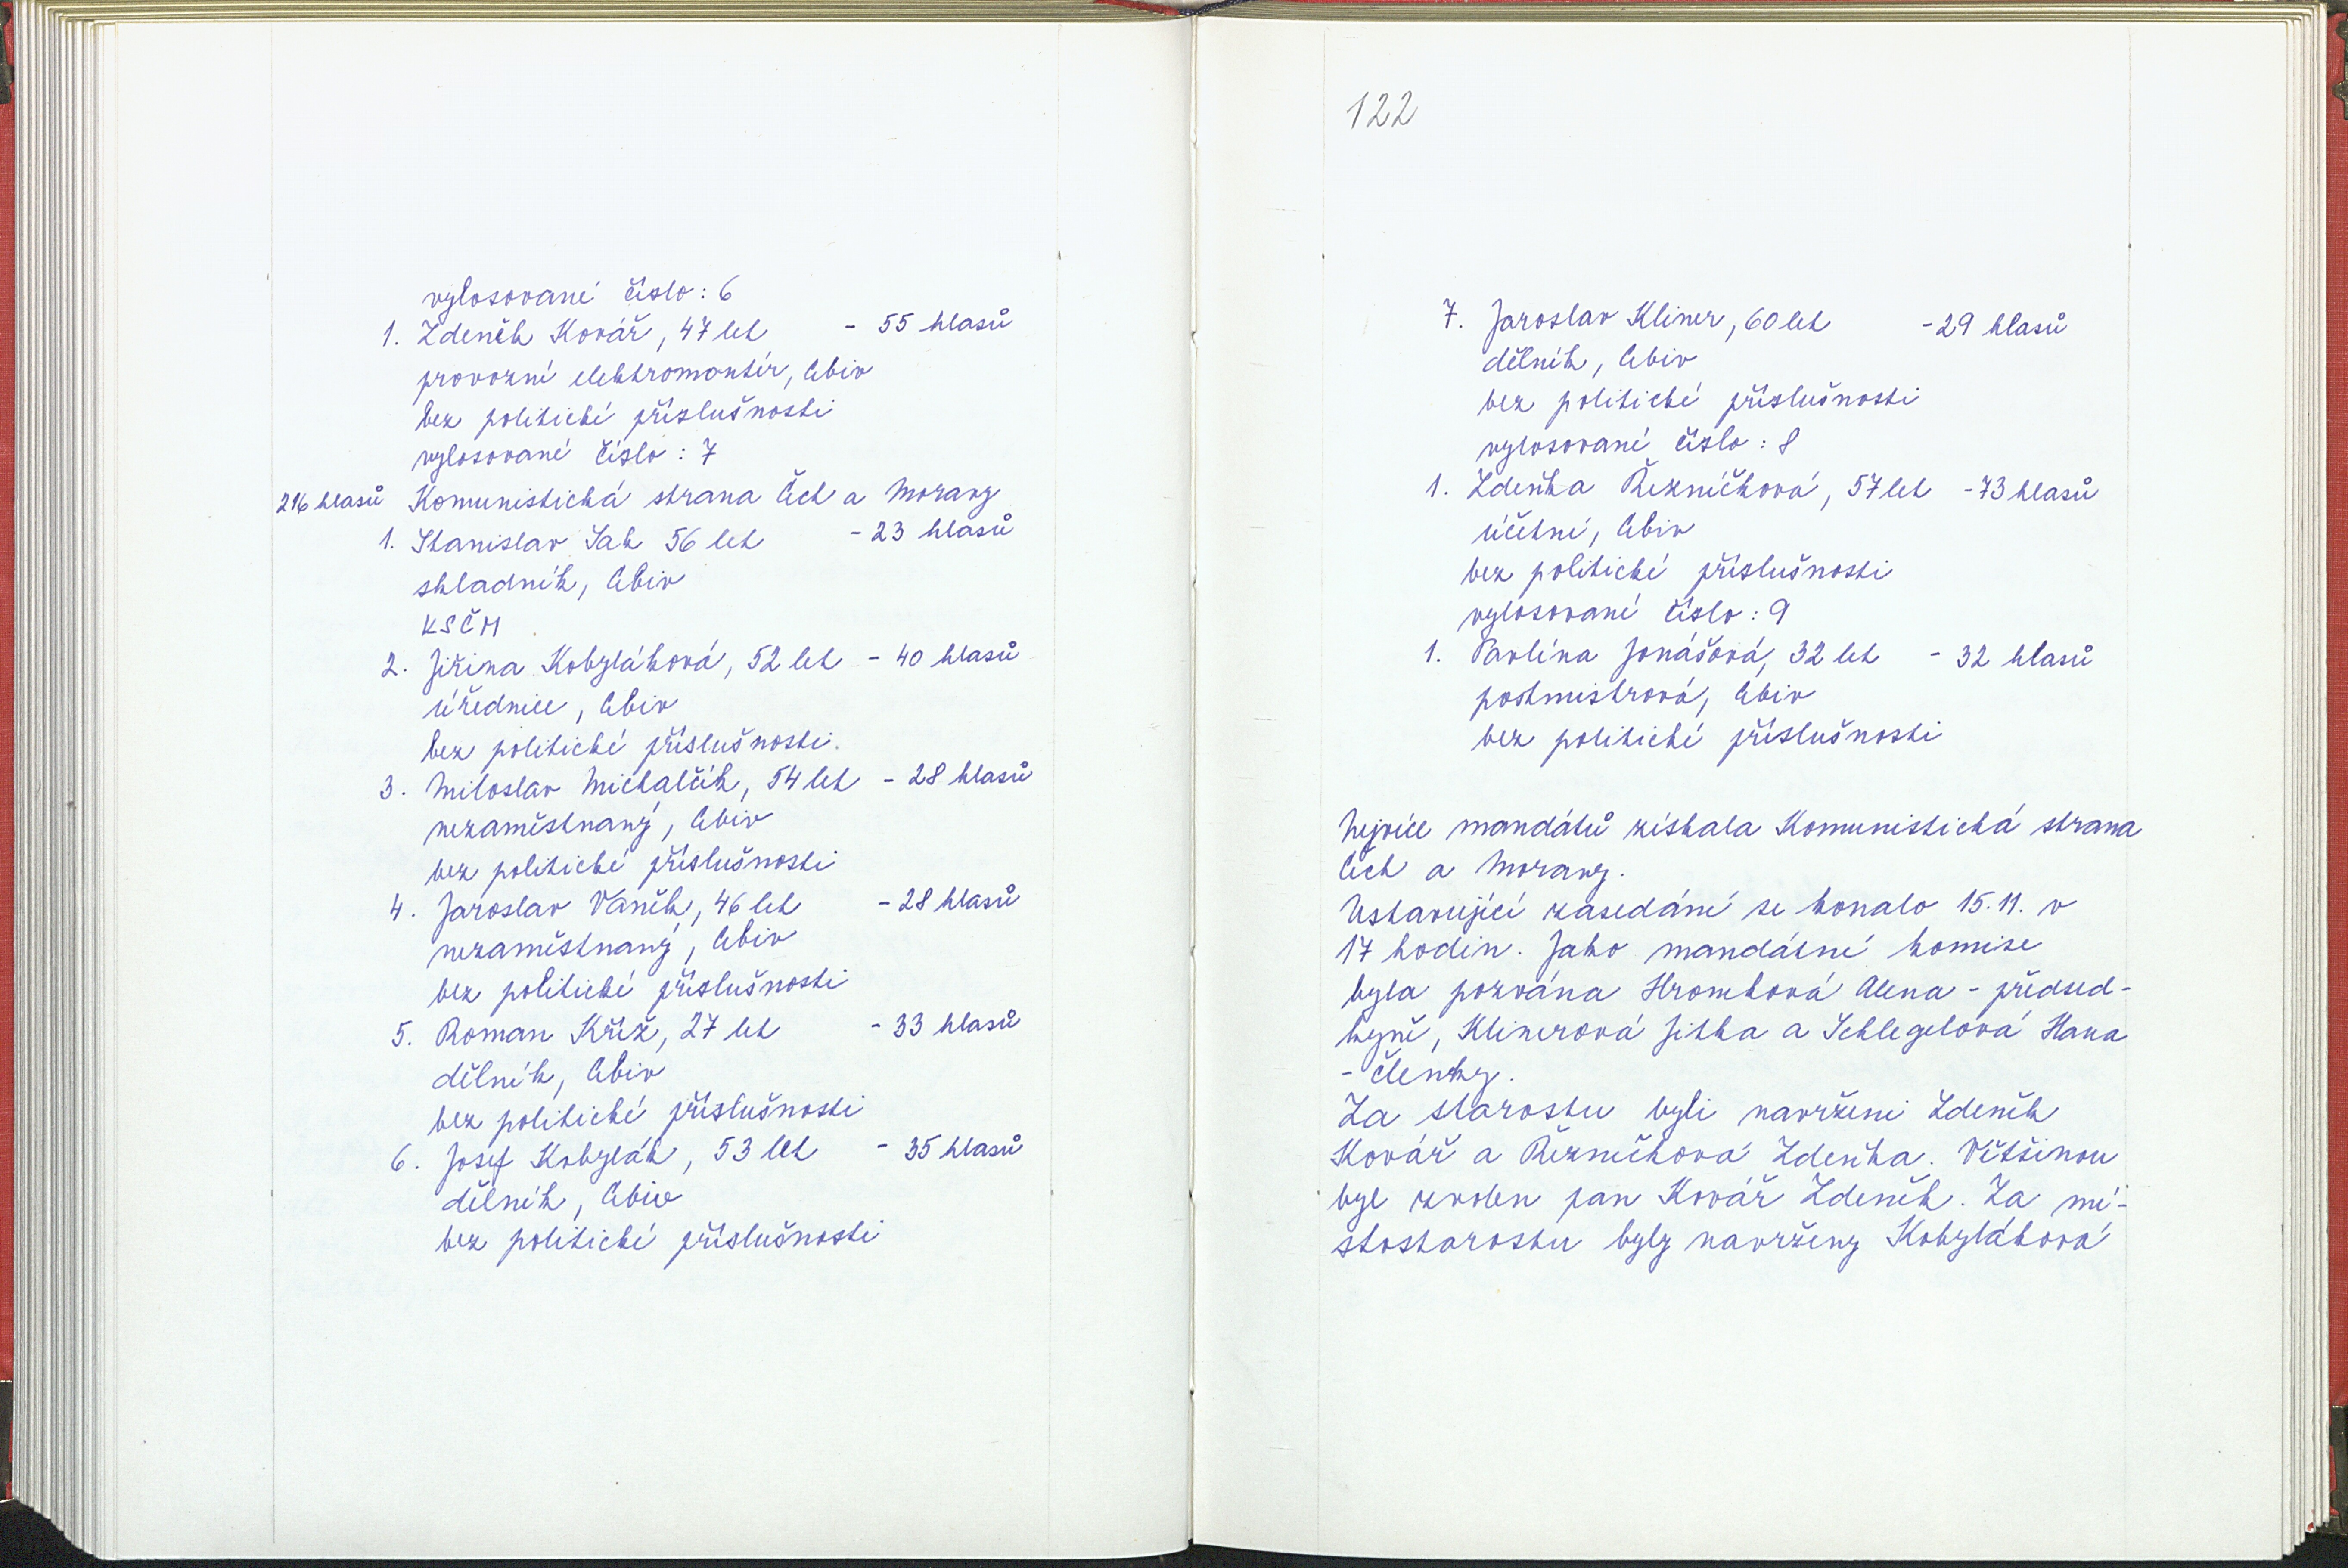 vylosované číslo: 6
1. Zdeněk Kovář, 47 let - 55 hlasů
provozní elektromontér, Cebiv
bez politické příslušnosti
vylosované číslo: 7
216 hlasů Komunistická strana Čech a Moravy
1. Stanislav Sak 56 let - 23 hlasů
skladník, Cebiv
KSČM
2. Jiřina Kobyláková, 52 let - 40 hlasů
úřednice, Cebiv
bez politické příslušnosti.
3. Miloslav Michalčík, 54 let - 28 hlasů
nezaměstnaný, Cebiv
bez politické příslušnosti
4. Jaroslav Vaněk, 46 let - 28 hlasů
nezaměstnaný, Cebiv
bez politické příslušnosti
5. Roman Kříž, 27 let - 33 hlasů
dělník, Cebiv
bez politické příslušnosti
6. Josef Kobylák, 53 let - 35 hlasů
dělník, Cebiv
bez politické příslušnosti
122
7. Jaroslav Kliner, 60 let - 29 hlasů
dělník, Cebiv
bez politické příslušnosti
vylosované číslo: 8
1. Zdeňka Řezníčková, 57 let - 73 hlasů
účetní, Cebiv
bez politické příslušnosti
vylosované číslo: 9
1. Pavlína Jonášová, 32 let - 32 hlasů
poštmistrová, Cebiv
bez politické příslušnosti
Nejvíce mandátů získala Komunistická strana
Čech a Moravy.
Ustavující zasedání se konalo 15.11. v
17 hodin. Jako mandátné komise
byla pozvána Hromková Alena - předsed-
kyně, Klinerová Jitka a Schlegelová Hana
- členky.
Za starostu byli navrženi Zdeněk
Kovář a Řezníčková Zdeňka. Většinou
byl zvolen pan Kovář Zdeněk. Za mí-
stostarostu byly navrženy Kobyláková